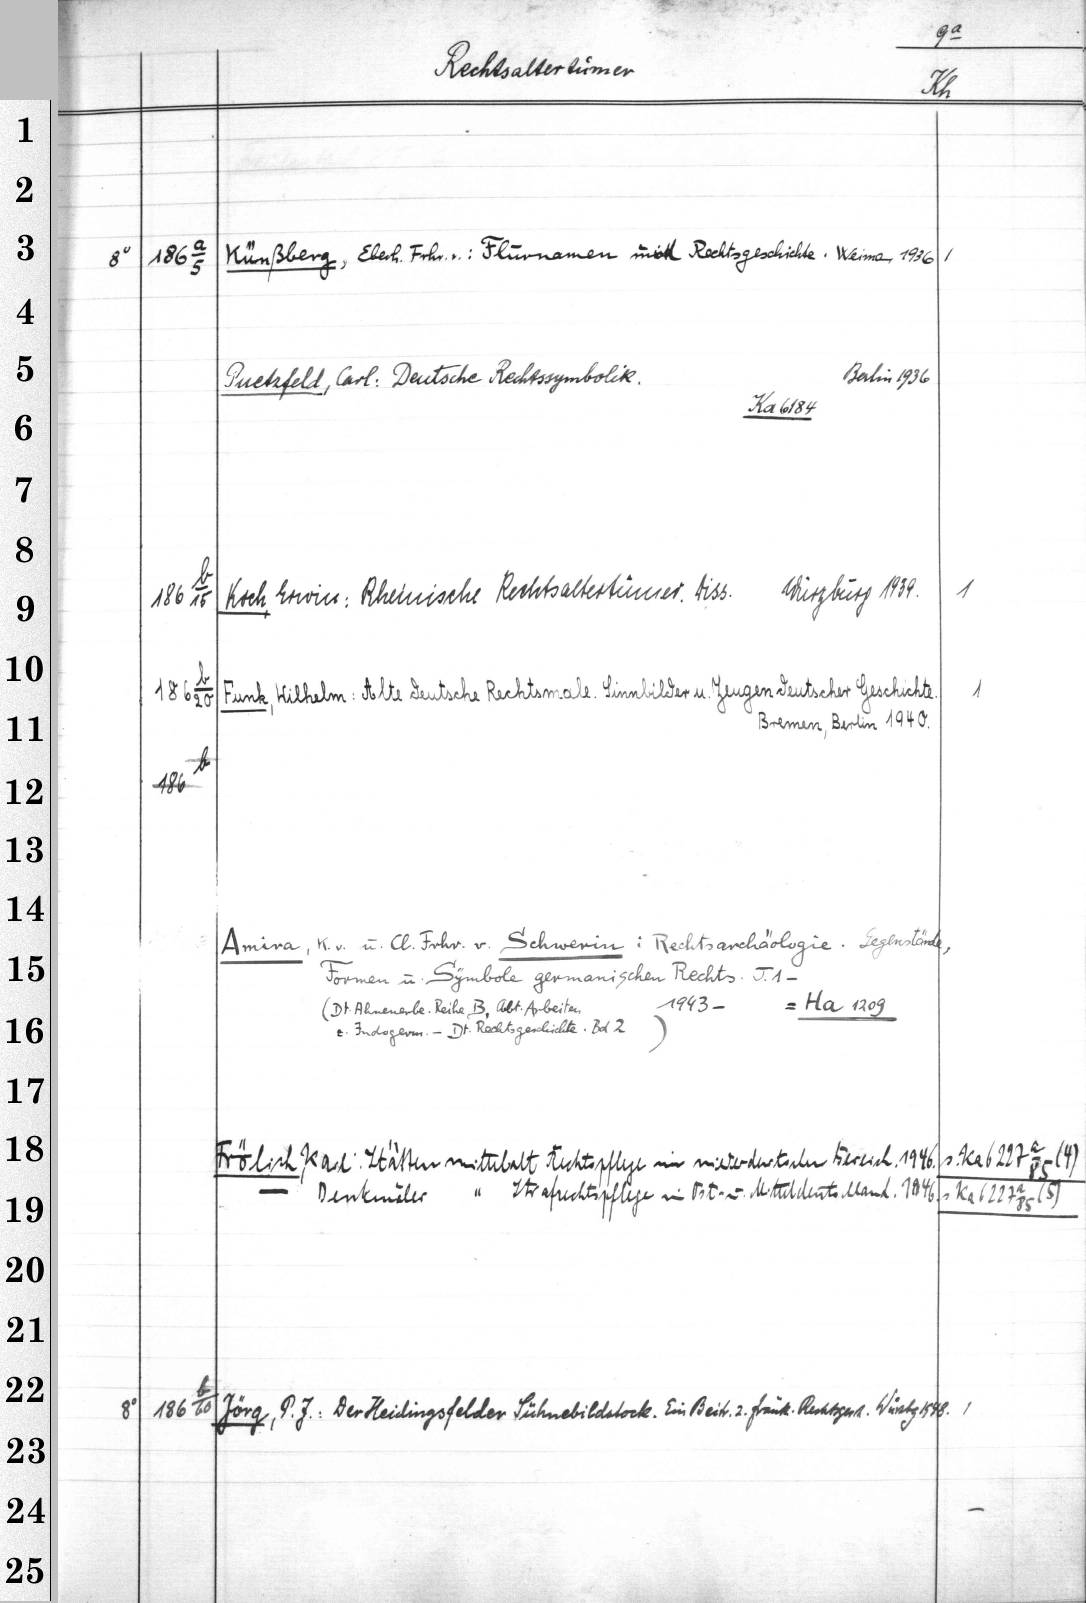 9a
Rechtsaltertümer
Kh
1
2
3 8° 186 a/5 Künßberg, Eberh. Frhr. v.: Flurnamen und Rechtsgeschichte. Weimar 1936 1
4
5 Puetzfeld, Carl: Deutsche Rechtssymbolik. Berlin 1936
Ka 6184
6
7
8
9 186 b/15 Koch Erwin: Rheinische Rechtsaltertümer. Diss. Würzburg 1939. 1
10 186 b/20 Funk, Wilhelm: Alte deutsche Rechtsmale. Sinnbilder u. Zeugen deutscher Geschichte. 1
11 Bremen, Berlin 1940.
12 186 b
13
14
Amira, K. v. u. Cl. Frhr. v. Schwerin: Rechtsarchäologie. Gegenstände,
15 Formen u. Symbole germanischen Rechts. T. 1 -
(Dt. Ahnenerbe. Reihe B, Abt. Arbeiten 1943 - = Ha 1209
16 z. Indogerm. - Dt. Rechtsgeschichte. Bd 2)
17
18 Frölich, Karl: Stätten mittelalt Rechtspflege im niederdeutschen Bereich. 1946. s. Ka 6227 a/85 (4)
— Denkmäler " Strafrechtspflege in Ost- u. Mitteldeutschland. 1946. s Ka 6227 a/85 (5)
19
20
21
22 8° 186 b/60 Jörg, P. J.: Der Heidingsfelder Sühnebildstock. Ein Beitr. z. fränk. Rechtsgesch. Würzbg 1948. 1
23
24 —
25